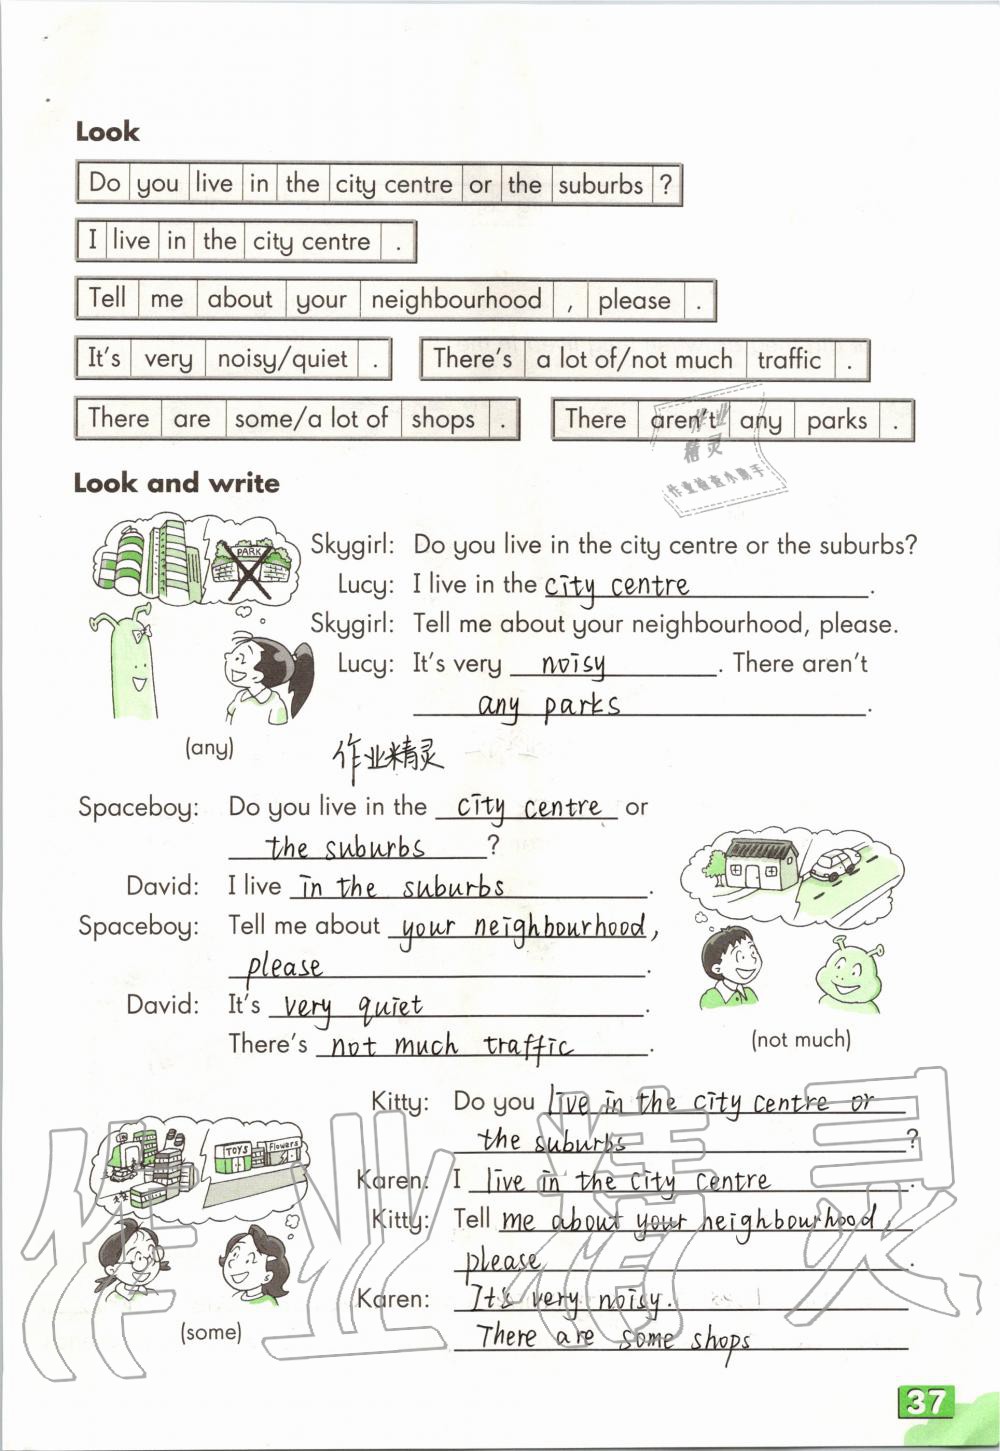 Look
Do you live in the city centre or the suburbs ?
I live in the city centre .
Tell me about your neighbourhood , please .
It's very noisy/quiet . There's a lot of/not much traffic .
There are some/a lot of shops . There aren't any parks .
作业
精灵
作业检查小助手
Look and write
PARK
Skygirl: Do you live in the city centre or the suburbs?
Lucy: I live in the city centre.
Skygirl: Tell me about your neighbourhood, please.
Lucy: It's very noisy. There aren't
any parks.
(any)
作业精灵
Spaceboy: Do you live in the city centre or
the suburbs?
David: I live in the suburbs.
Spaceboy: Tell me about your neighbourhood,
please.
David: It's very quiet.
There's not much traffic.
(not much)
Kitty: Do you live in the city centre or
the suburbs?
TOYS Flowers
Karen: I live in the city centre.
Kitty: Tell me about your neighbourhood,
please.
Karen: It's very noisy.
There are some shops
(some)
作业精灵
37